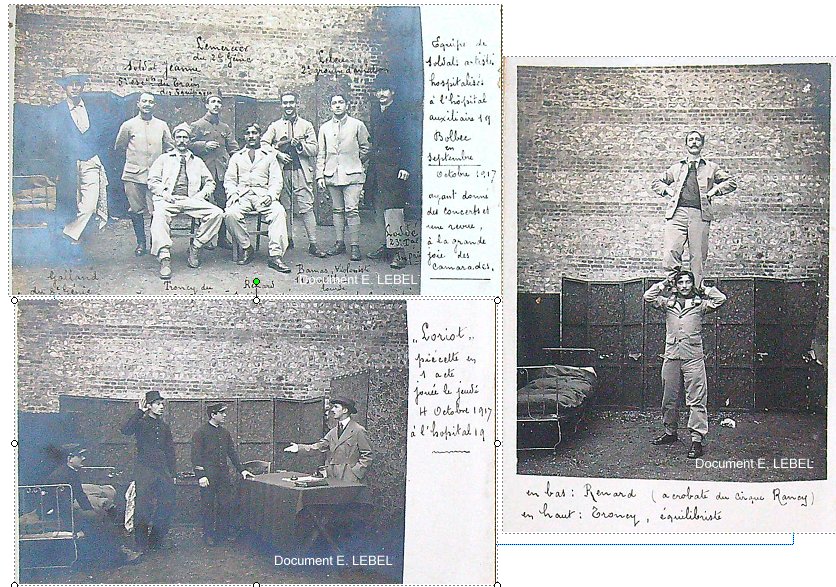 Lemercier
du 2e Génie
Soldat Jeanne
3e esc. du Train
des Equipages
Lebou
2e groupe d'aviation
Equipe de
Soldats artistes
hospitalisés
à l'hôpital
auxiliaire 19
Bolbec
en
Septembre
Octobre 1917
ayant donné
des concerts et
une revue,
à la grande
joie des
Camarades.
23e
Galland
du Génie
Troncy du
Renard
Barnas, Violoniste
Document E. LEBEL
"Loriot"
piècette en
1 acte
jouée le jeudi
4 Octobre 1917
à l'hopital 19
Document E. LEBEL
Document E. LEBEL
en bas : Renard (acrobate du cirque Rancy)
en haut : Troncy, équilibriste